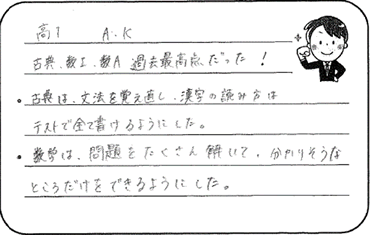 高1 A.K
古典、数I、数A 過去最高点だった！
・古典は、文法を覚え直し、漢字の読み方は
テストで全て書けるようにした。
・数学は、問題をたくさん解いて、分かりそうな
ところだけをできるようにした。